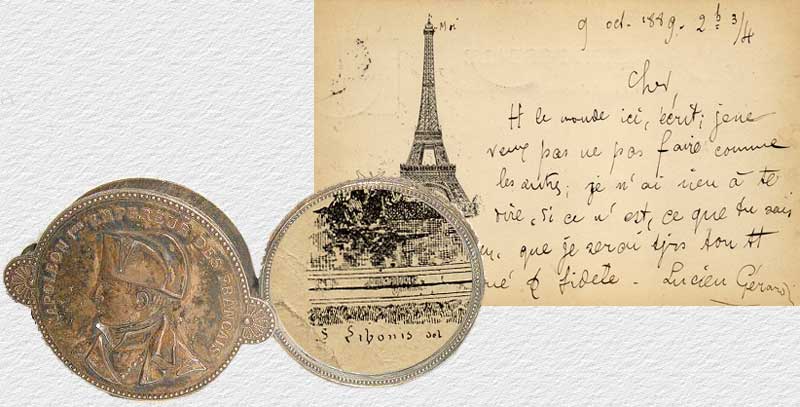 Moi
9 oct. 1889. 2 h 3/4
Cher,
Tt le monde ici, écrit; je ne
veux pas ne pas faire comme
les autres; je n'ai rien à te
dire, si ce n'est, ce que tu sais
que je serai tjrs ton tt
& fidèle - Lucien Gérard
NAPOLEON Ier EMPEREUR DES FRANÇAIS
Libonis del